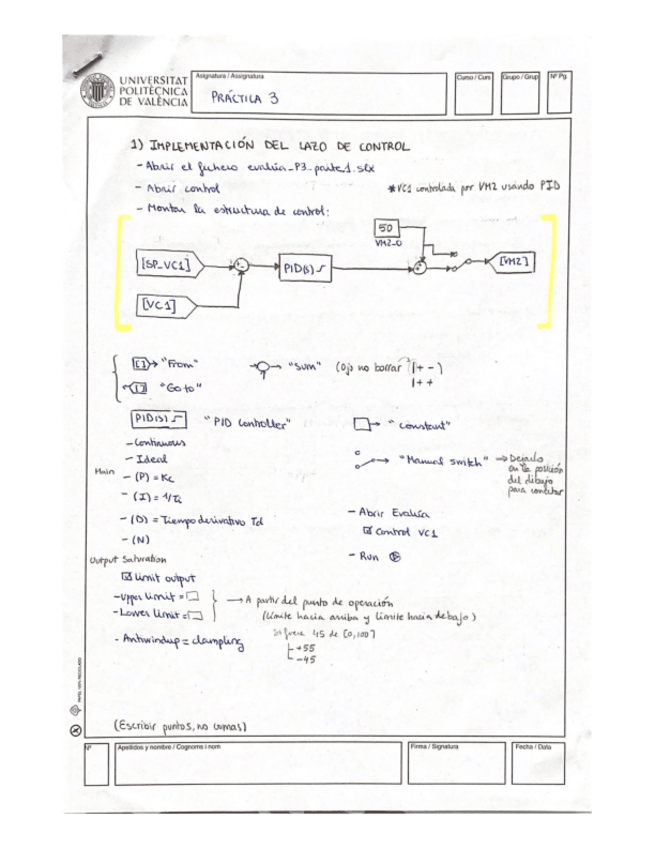 UNIVERSITAT
POLITÈCNICA
DE VALÈNCIA
Asignatura / Assignatura
PRÁCTICA 3
Curso / Curs
Grupo / Grup
Nº Pg.
1) IMPLEMENTACIÓN DEL LAZO DE CONTROL
- Abrir el fichero evalua_P3_parte_1.slx
- Abrir control
*VC1 controlada por VM2 usando PID
- Montar la estructura de control:
50
VM2_0
[SP_VC1]
PID(s)
[VM2]
[VC1]
"From"
"Sum" (ojo no borrar |+ - )
|+ +
"Go to"
PID(s)
"PID Controller"
"constant"
- Continuous
- Ideal
Main
- (P) = Kc
- (I) = 1/Ti
- (D) = Tiempo derivativo Td
- (N)
"Manual switch" → Dejarlo
en la posición
del dibujo
para conectar
- Abrir Evalúa
Control VC1
- Run
Output Saturation
Limit output
- Upper limit =
- Lower limit =
→ A partir del punto de operación
(límite hacia arriba y límite hacia debajo)
Si fuera 45 de [0,100]
+55
-45
- Antiwindup = clampling
(Escribir puntos, no comas)
Nº
Apellidos y nombre / Cognoms i nom
Firma / Signatura
Fecha / Data